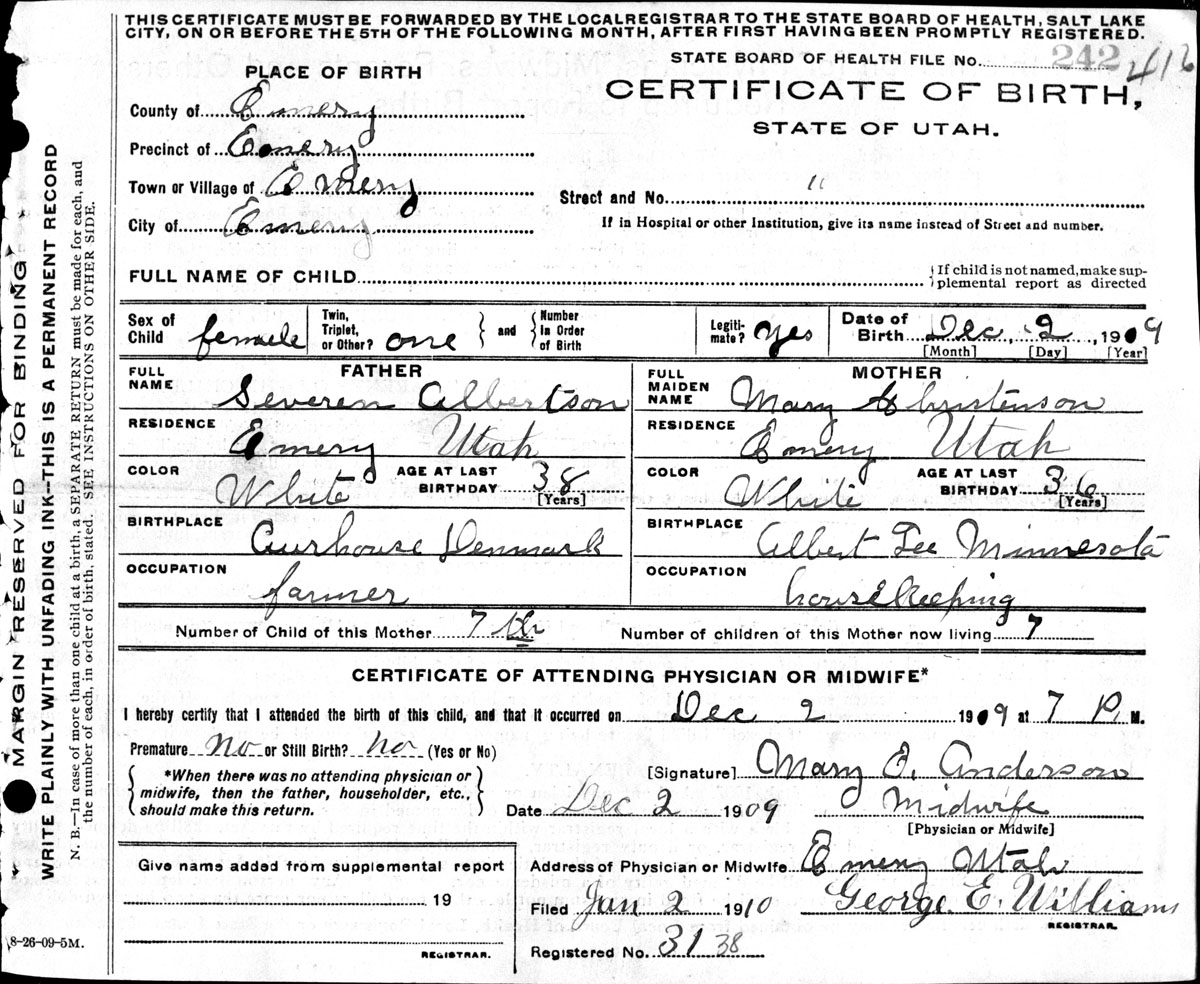 THIS CERTIFICATE MUST BE FORWARDED BY THE LOCAL REGISTRAR TO THE STATE BOARD OF HEALTH, SALT LAKE
CITY, ON OR BEFORE THE 5TH OF THE FOLLOWING MONTH, AFTER FIRST HAVING BEEN PROMPTLY REGISTERED.
STATE BOARD OF HEALTH FILE No. 242 416
PLACE OF BIRTH
CERTIFICATE OF BIRTH,
STATE OF UTAH.
County of Emery
Precinct of Emery
Town or Village of Emery
Street and No. "
City of Emery
If in Hospital or other Institution, give its name instead of Street and number.
FULL NAME OF CHILD
If child is not named, make sup-
plemental report as directed
Sex of Child female Twin, Triplet, or Other? one and Number in Order of Birth Legiti-mate? yes Date of Birth Dec, 2, 1909
[Month] [Day] [Year]
FATHER
FULL NAME Severen Albertson
RESIDENCE Emery Utah
COLOR White AGE AT LAST BIRTHDAY 38 [Years]
BIRTHPLACE Aurhouse Denmark
OCCUPATION farmer
MOTHER
FULL MAIDEN NAME Mary Christenson
RESIDENCE Emery Utah
COLOR White AGE AT LAST BIRTHDAY 36 [Years]
BIRTHPLACE Albert Lee Minnesota
OCCUPATION housekeeping
Number of Child of this Mother 7th Number of children of this Mother now living 7
CERTIFICATE OF ATTENDING PHYSICIAN OR MIDWIFE*
I hereby certify that I attended the birth of this child, and that it occurred on Dec 2 1909 at 7 P. M.
Premature No or Still Birth? No (Yes or No)
*When there was no attending physician or
midwife, then the father, householder, etc.,
should make this return.
[Signature] Mary E. Anderson
Date Dec 2 1909 Midwife
[Physician or Midwife]
Give name added from supplemental report
19
REGISTRAR.
Address of Physician or Midwife Emery Utah
Filed Jan 2 1910 George E. Williams
REGISTRAR.
Registered No. 31 38
8-26-09-5M.
MARGIN RESERVED FOR BINDING
WRITE PLAINLY WITH UNFADING INK—THIS IS A PERMANENT RECORD
N. B.—In case of more than one child at a birth, a SEPARATE RETURN must be made for each, and
the number of each, in order of birth, stated. SEE INSTRUCTIONS ON OTHER SIDE.